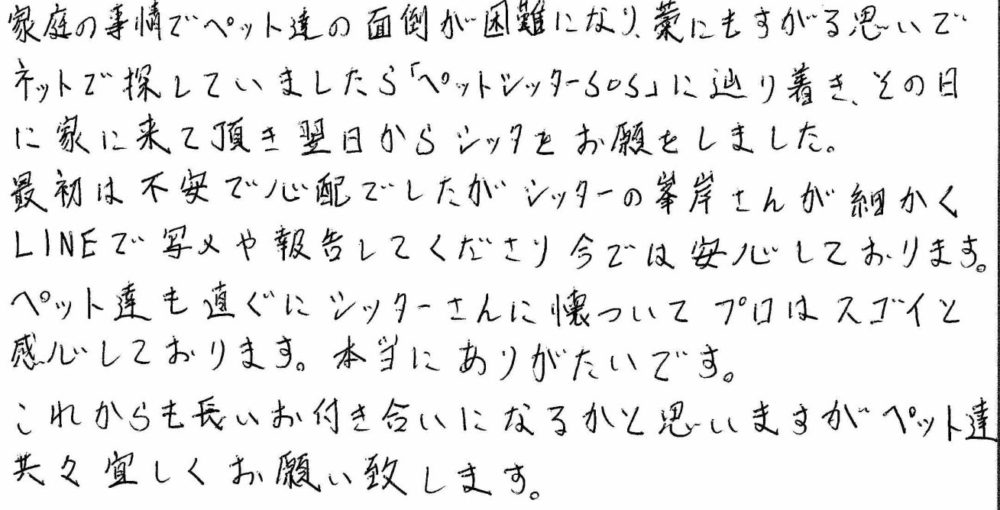 家庭の事情でペット達の面倒が困難になり、藁にもすがる思いで
ネットで探していましたら「ペットシッターSOS」に辿り着き、その日
に家に来て頂き翌日からシッタをお願をしました。
最初は不安で心配でしたがシッターの峯岸さんが細かく
LINEで写メや報告してくださり今では安心しております。
ペット達も直ぐにシッターさんに懐ついてプロはスゴイと
感心しております。本当にありがたいです。
これからも長いお付き合いになるかと思いますがペット達
共々宜しくお願い致します。